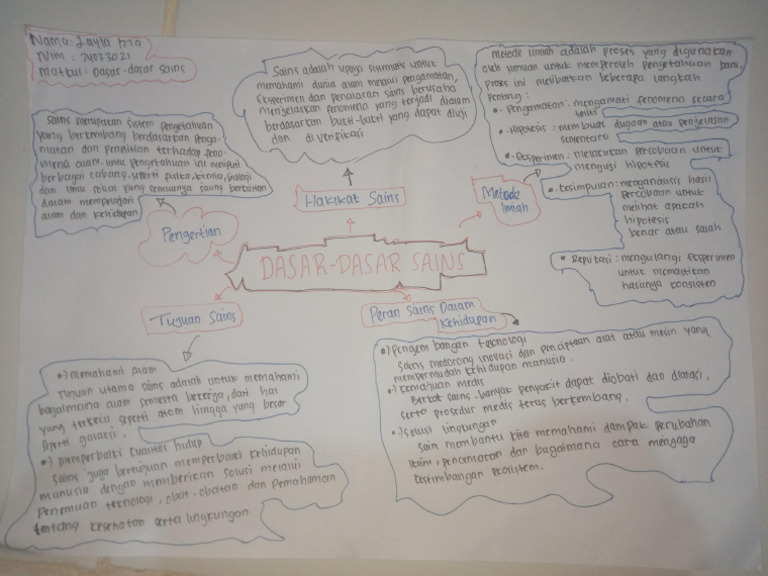 Nama: Layla
Nim : 24033021
Matkul: Dasar-dasar sains
Sains adalah upaya sistmatis untuk
memahami dunia alam melalui pengamatan,
Eksperimen dan penalaran sains berusaha
menjelaskan fenomena yang terjadi dialam
berdasarkan bukti-bukti yang dapat diuji
dan diverifikasi
Metode ilmiah adalah proses yang digunakan
oleh ilmuan untuk memperoleh pengetahuan baru,
proses ini melibatkan beberapa langkah
penting:
•. Pengamatan: mengamati fenomena secara
teliti
•. Hipotesis: membuat dugaan atau penjelasan
sementara
•. Eksperimen: melakukan percobaan untuk
menguji hipotesis
•. kesimpulan: menganalisis hasil
percobaan untuk
melihat apakah
hipotesis
benar atau salah
• Reputasi: mengulangi eksperimen
untuk memastikan
hasilnya konsisten
Sains merupakan sistem pengetahuan
yang berkembang berdasarkan penga-
matan dan penelitian terhadap feno-
mena alam. Ilmu pengetahuan ini meliputi
berbagai cabang, seperti fisika, kimia, biologi
dan ilmu yang semuanya saling berkaitan
dalam mempelajari
alam dan kehidupan
Hakikat Sains
Metode
Ilmiah
Pengertian
DASAR-DASAR SAINS
Tujuan Sains
Peran Sains Dalam
Kehidupan
•) Memahami Alam
Tujuan utama sains adalah untuk memahami
bagaimana alam semesta bekerja, dari hal
yang terkecil seperti atom hingga yang besar
seperti galaksi.
•) memperbaiki kualitas hidup
Sains juga bertujuan memperbaiki kehidupan
manusia dengan memberikan solusi melalui
Penemuan teknologi, obat-obatan dan pemahaman
tentang kesehatan serta lingkungan
•) Pengembangan teknologi
Sains mendorong inovasi dan penciptaan alat atau mesin yang
mempermudah kehidupan manusia.
•) kemajuan medis
Berkat sains banyak penyakit dapat diobati dan diatasi,
serta prosedur medis terus berkembang.
•) solusi lingkungan
Sain membantu kita memahami dampak perubahan
iklim, pencemaran dan bagaimana cara menjaga
keseimbangan ekosistem.